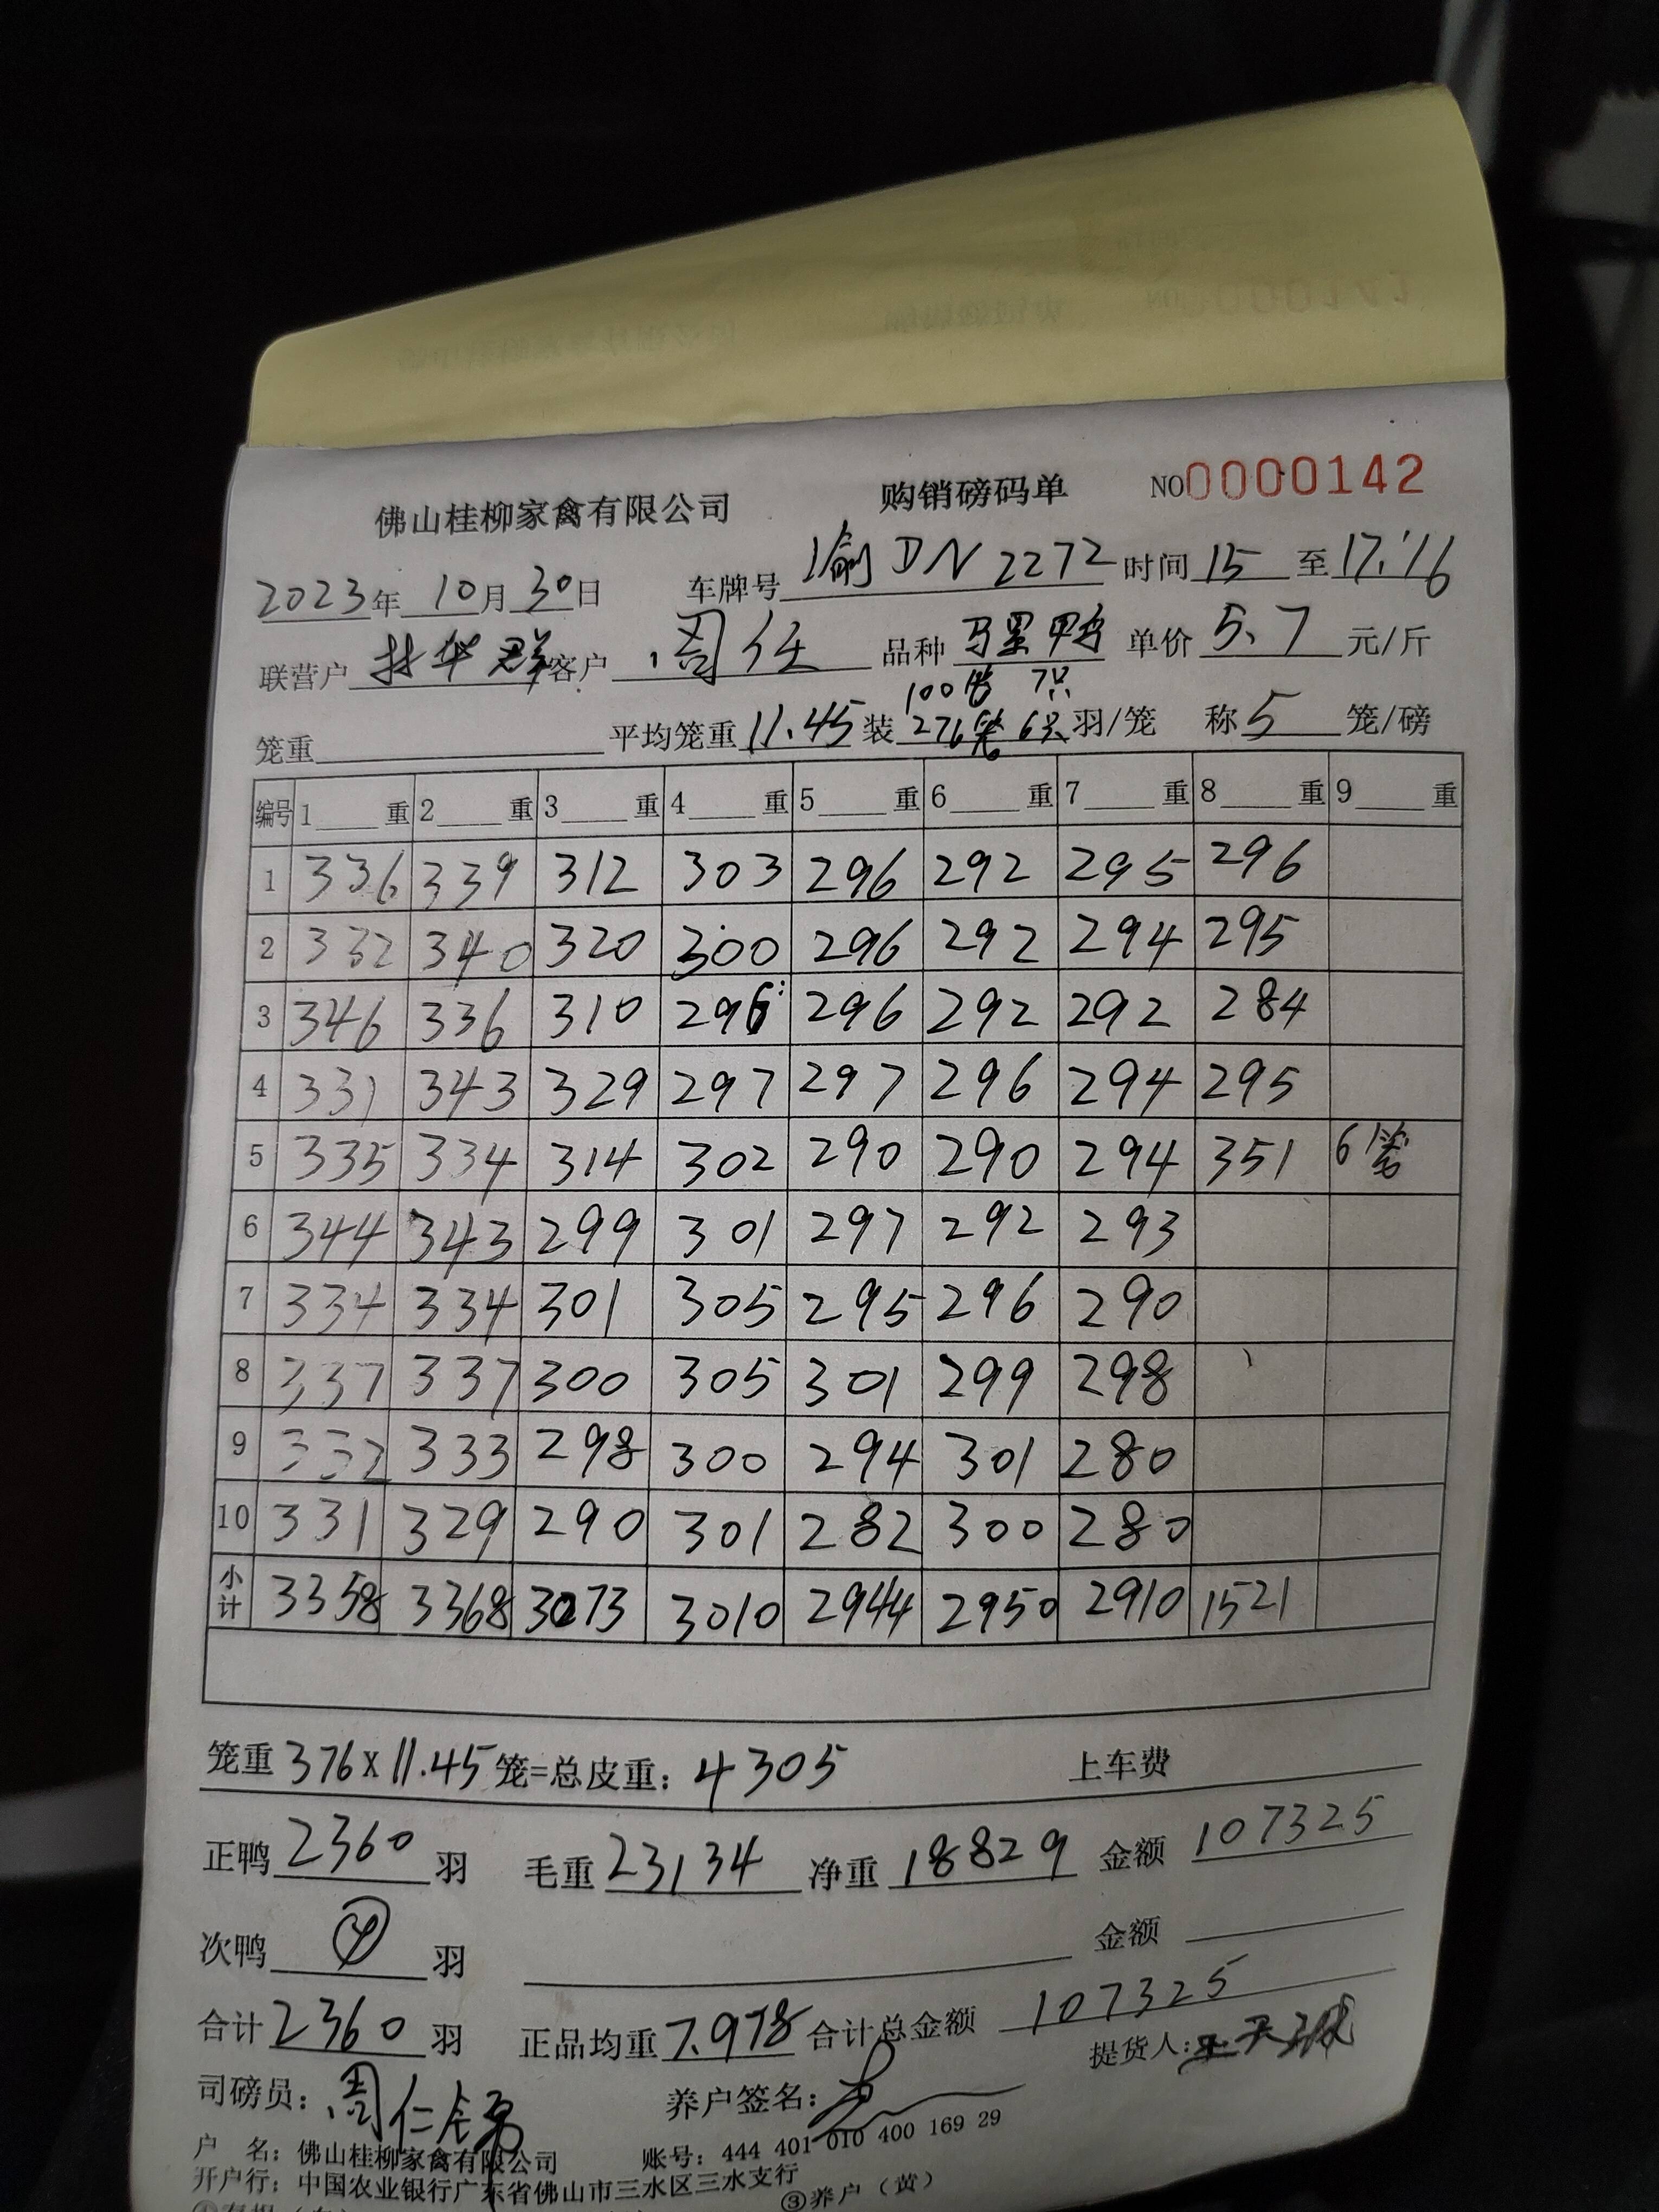 佛山桂柳家禽有限公司 购销磅码单 NO0000142
2023年 10月 30日 车牌号 渝DN2272 时间 15 至 17:16
联营户 林华群 客户 周仁 品种 马黑鸭 单价 5.7 元/斤
100笼 7只
笼重 平均笼重 11.45 装 276笼 6只 羽/笼 称 5 笼/磅
编号 1 重 2 重 3 重 4 重 5 重 6 重 7 重 8 重 9 重
1 336 339 312 303 296 292 295 296
2 332 340 320 300 296 292 294 295
3 346 336 310 296 296 292 292 284
4 331 343 329 297 297 296 294 295
5 335 334 314 302 290 290 294 351 6笼
6 344 343 299 301 297 292 293
7 334 334 301 305 295 296 290
8 337 337 300 305 301 299 298
9 332 333 298 300 294 301 280
10 331 329 290 301 282 300 280
小计 3358 3368 3073 3010 2944 2950 2910 1521
笼重 376x11.45 笼=总皮重: 4305 上车费
正鸭 2360 羽 毛重 23134 净重 18829 金额 107325
次鸭 羽 金额
合计 2360 羽 正品均重 7.978 合计总金额 107325
提货人:
司磅员: 周仁 养户签名:
户 名: 佛山桂柳家禽有限公司 账号: 444 401 010 400 169 29
开户行: 中国农业银行广东省佛山市三水区三水支行
③养户（黄）